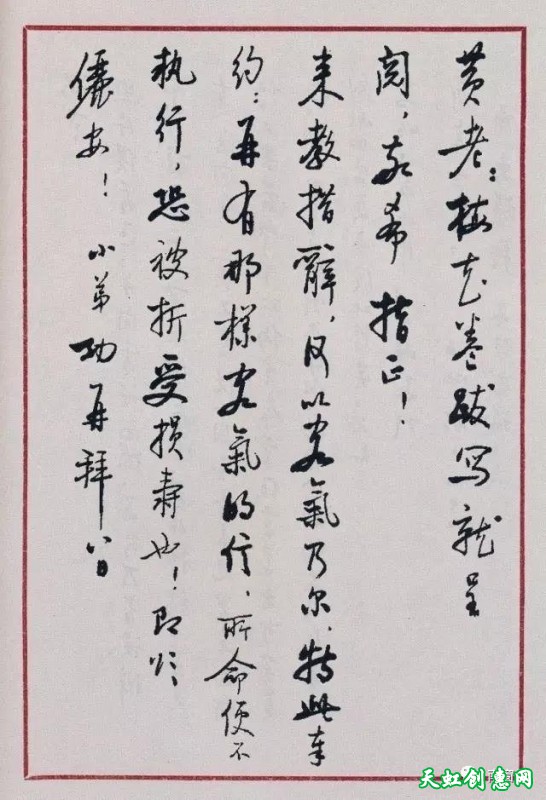 黄老：梅花卷跋写就呈
阅，敬希 指正！
来教措辞，何以客氣乃尔，特此奉
约：再有那樣客氣的信，所命便不
执行，恐被折受损寿也！即颂
俪安！ 小弟功再拜 八日
天虹创意网